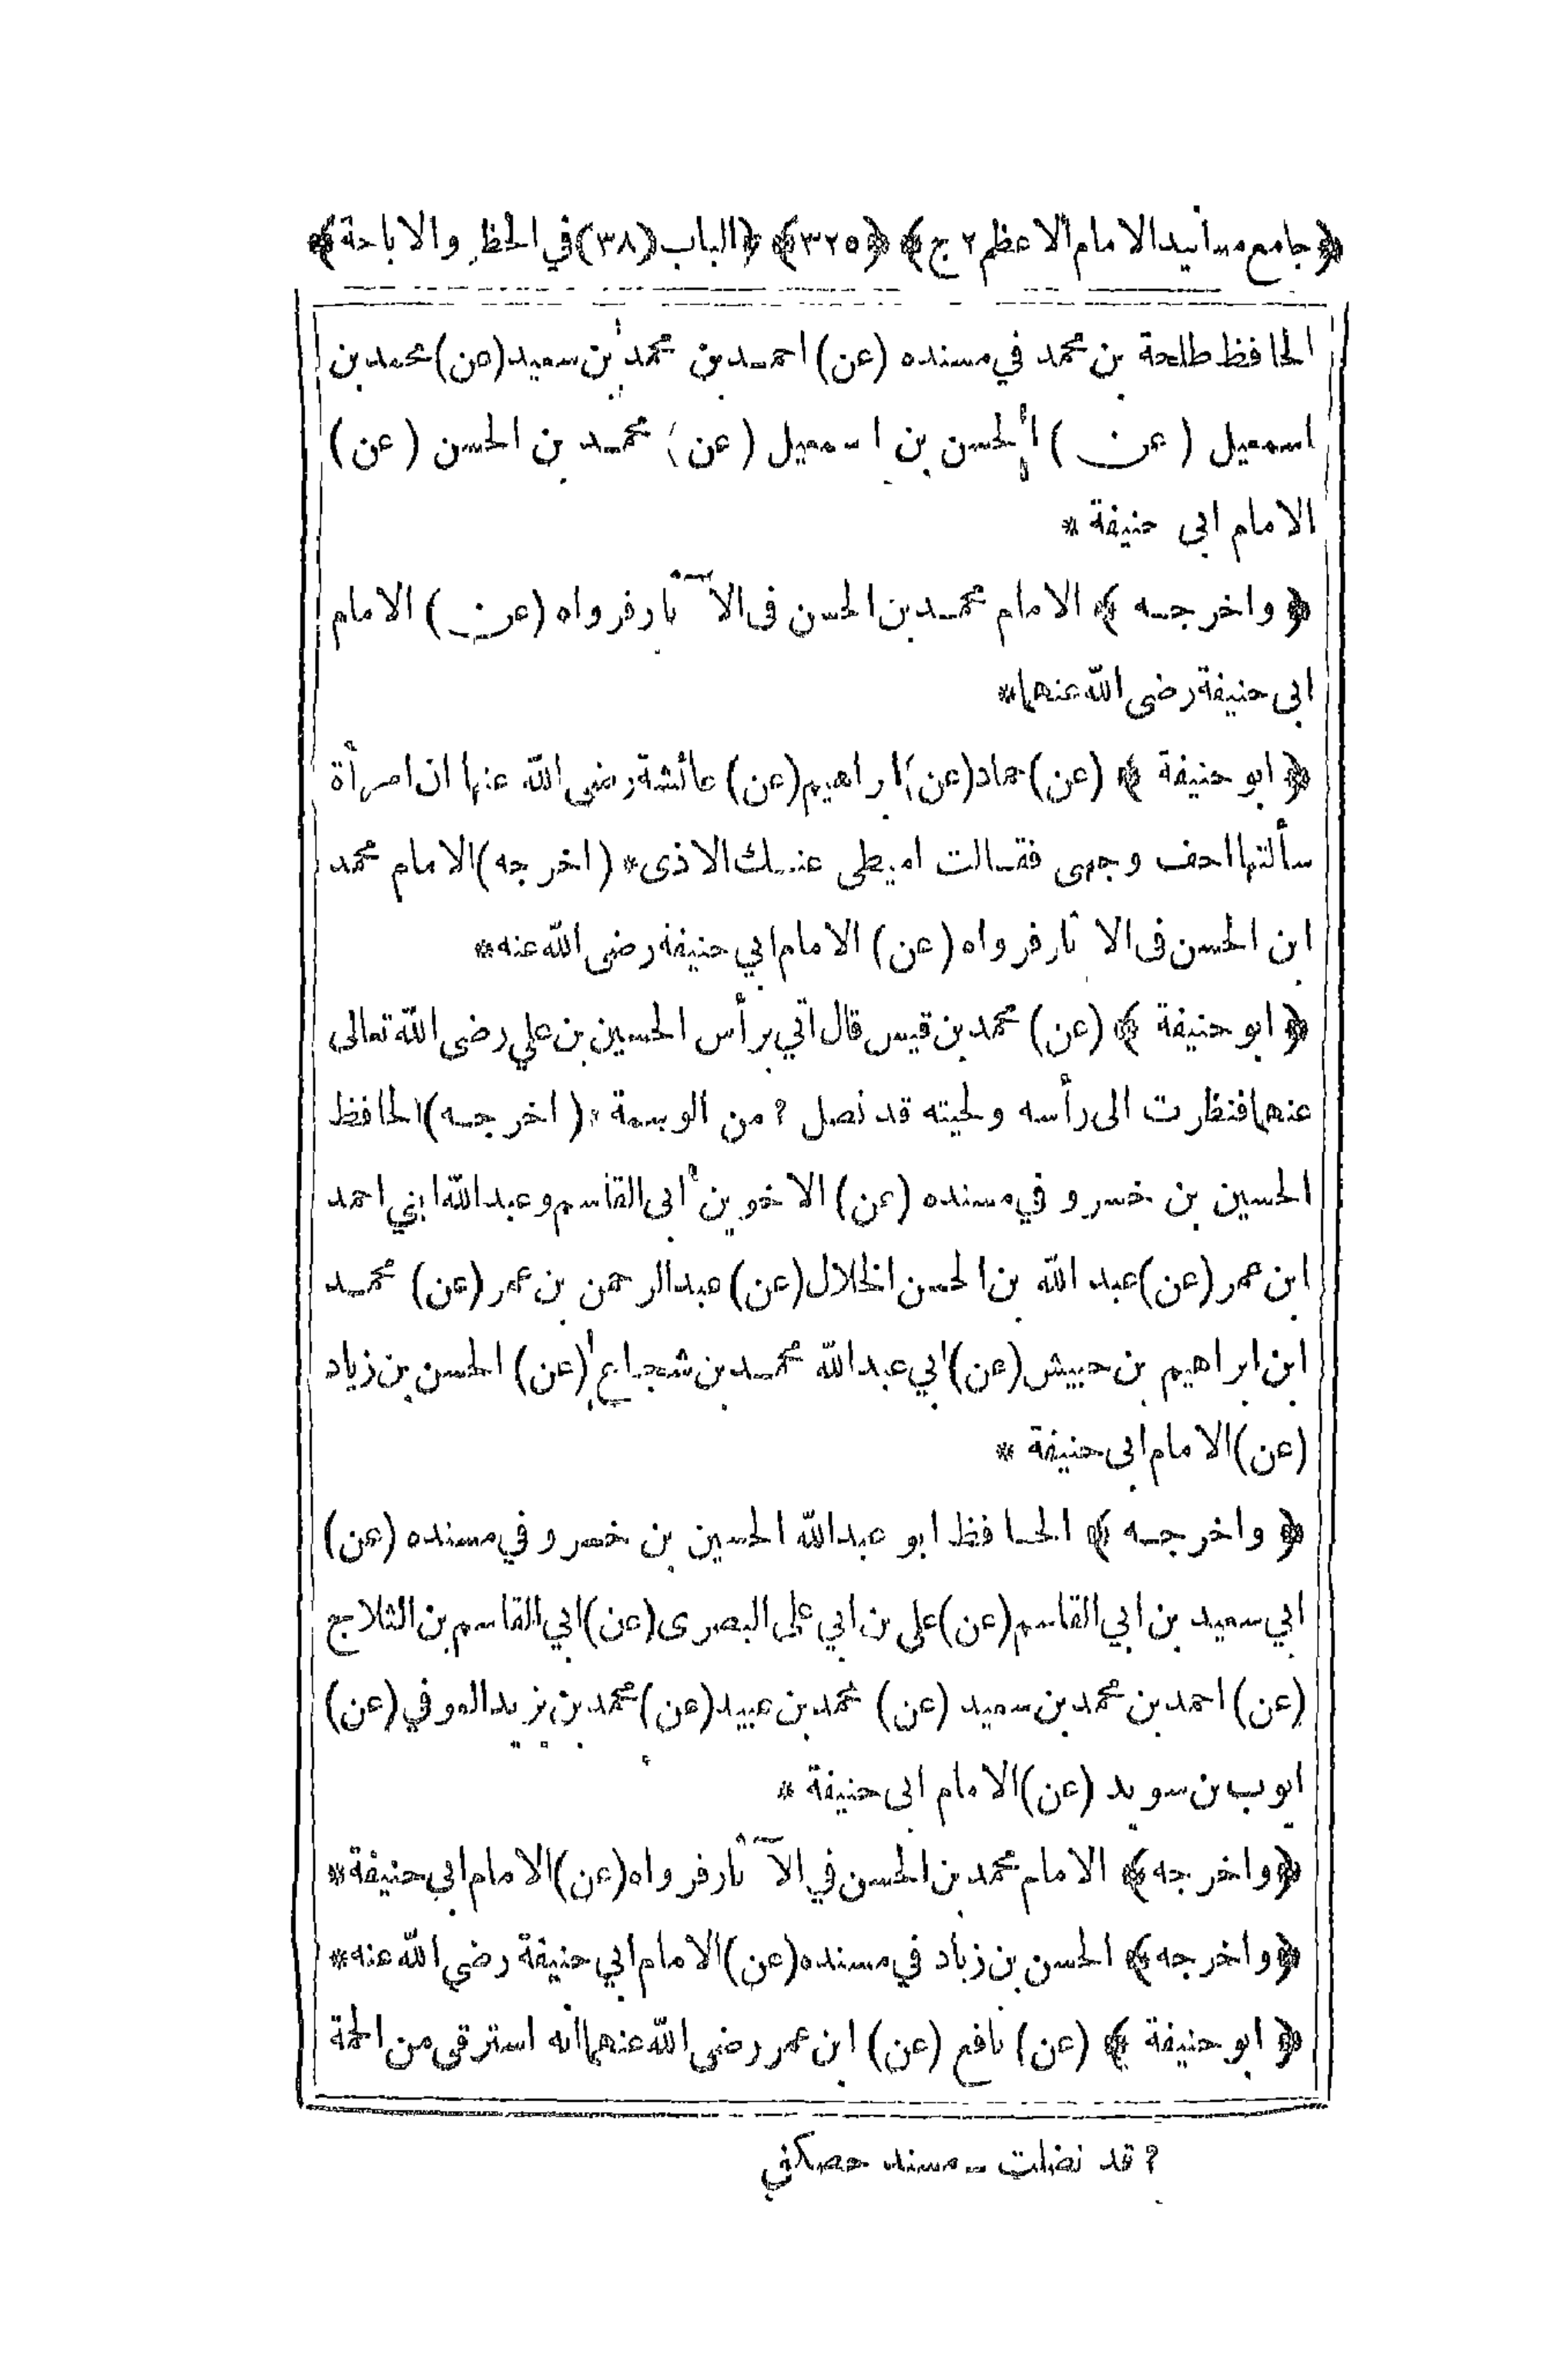 ﴿جامع مسانيد الامام الاعظم ٢ ج﴾ ﴿٣٢٥﴾ ﴿الباب (٣٨) في الحظر والاباحة﴾
الحافظ طلحة بن محمد في مسنده (عن) احمد بن محمد بن سعيد (عن) محمد بن
اسمعيل (عن) الحسن بن اسمعيل (عن) محمد بن الحسن (عن)
الامام ابى حنيفة *
﴿واخرجه﴾ الامام محمد بن الحسن فى الآثار فرواه (عن) الامام
ابى حنيفة رضى الله عنهما *
﴿ابو حنيفة﴾ (عن) حماد (عن) ابراهيم (عن) عائشة رضى الله عنها ان امرأة
سألتها احف وجهى فقالت اميطى عنك الاذى * (اخرجه) الامام محمد
ابن الحسن فى الآثار فرواه (عن) الامام ابي حنيفة رضى الله عنه *
﴿ابو حنيفة﴾ (عن) محمد بن قيس قال اتي برأس الحسين بن علي رضى الله تعالى
عنهما فنظرت الى رأسه ولحيته قد نصل ? من الوسمة * (اخرجه) الحافظ
الحسين بن خسرو في مسنده (عن) الاخوين ابى القاسم وعبد الله ابني احمد
ابن عمر (عن) عبد الله بن الحسن الخلال (عن) عبد الرحمن بن عمر (عن) محمد
ابن ابراهيم بن حبيش (عن) ابي عبد الله محمد بن شجاع (عن) الحسن بن زياد
(عن) الامام ابى حنيفة *
﴿واخرجه﴾ الحافظ ابو عبد الله الحسين بن خسرو في مسنده (عن)
ابي سعيد بن ابي القاسم (عن) علي بن ابي على البصرى (عن) ابي القاسم بن الثلاج
(عن) احمد بن محمد بن سعيد (عن) محمد بن عبيد (عن) محمد بن يزيد العوفي (عن)
ايوب بن سويد (عن) الامام ابى حنيفة *
﴿واخرجه﴾ الامام محمد بن الحسن في الآثار فرواه (عن) الامام ابي حنيفة *
﴿واخرجه﴾ الحسن بن زياد في مسنده (عن) الامام ابي حنيفة رضي الله عنه *
﴿ابو حنيفة﴾ (عن) نافع (عن) ابن عمر رضى الله عنهما انه استرقى من الحمة
? قد نضلت - مسند حصكفي